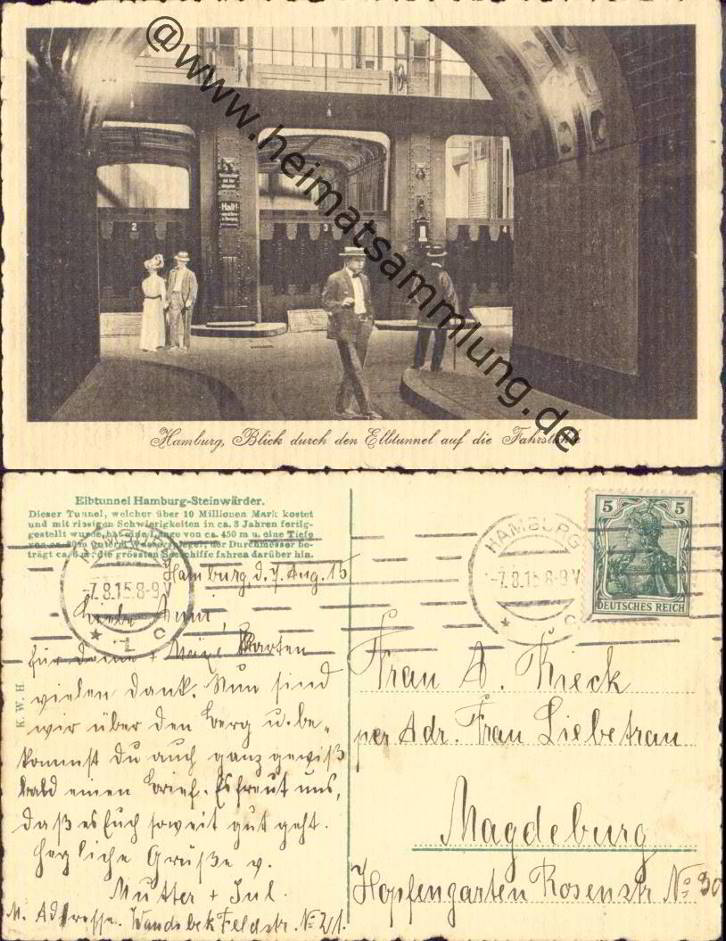 @www.heimatsammlung.de
2
Halt!
3
Hamburg, Blick durch den Elbtunnel auf die Fahrstühle
Elbtunnel Hamburg-Steinwärder.
Dieser Tunnel, welcher über 10 Millionen Mark kostet
und mit riesigen Schwierigkeiten in ca. 3 Jahren fertig-
gestellt wurde, hat eine Länge von ca. 450 m u. eine Tiefe
von ca. 20m unterm Wasserspiegel, der Durchmesser be-
trägt ca. 6 m; die grössten Seeschiffe fahren darüber hin.
HAMBURG
-7.8.15 8-9V
* 1 c
HAMBURG
-7.8.15 8-9V
* c
5 5
DEUTSCHES REICH
K. W. H
Hamburg d. 7. Aug. 15
Liebe Anni,
für Deine + Karten
vielen Dank. Nun sind
wir über den Berg u. be-
kommst Du auch ganz gewiß
bald einen Brief. Es freut uns,
daß es Euch soweit gut geht.
Herzliche Grüße v.
Mutter + Jul.
M. Adresse. Wandsbek Feldstr. No 21.
Frau A. Rieck
per Adr. Frau Liebetrau
Magdeburg
Hopfengarten Rosenstr No 30